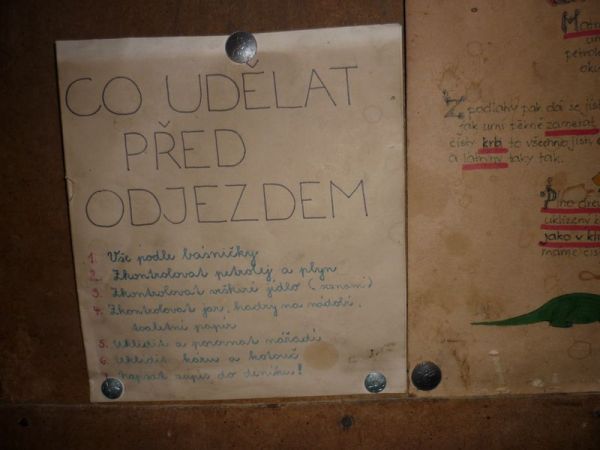 CO UDĚLAT
PŘED
ODJEZDEM
1. Vše podle básničky
2. Zkontrolovat petrolej a plyn
3. Zkontrolovat veškeré jídlo (seznam)
4. Zkontrolovat jar, hadry na nádobí,
toaletní papír
5. Uklidit a porovnat nářadí
6. Uklidit kůlnu a
7. Napsat zápis do deníku!
Z podlahy pak dá se jíst
jak umí pěkně zametat
čistý krb to všechno jistí
a latríny taky tak.
uklizený
jako v
máme